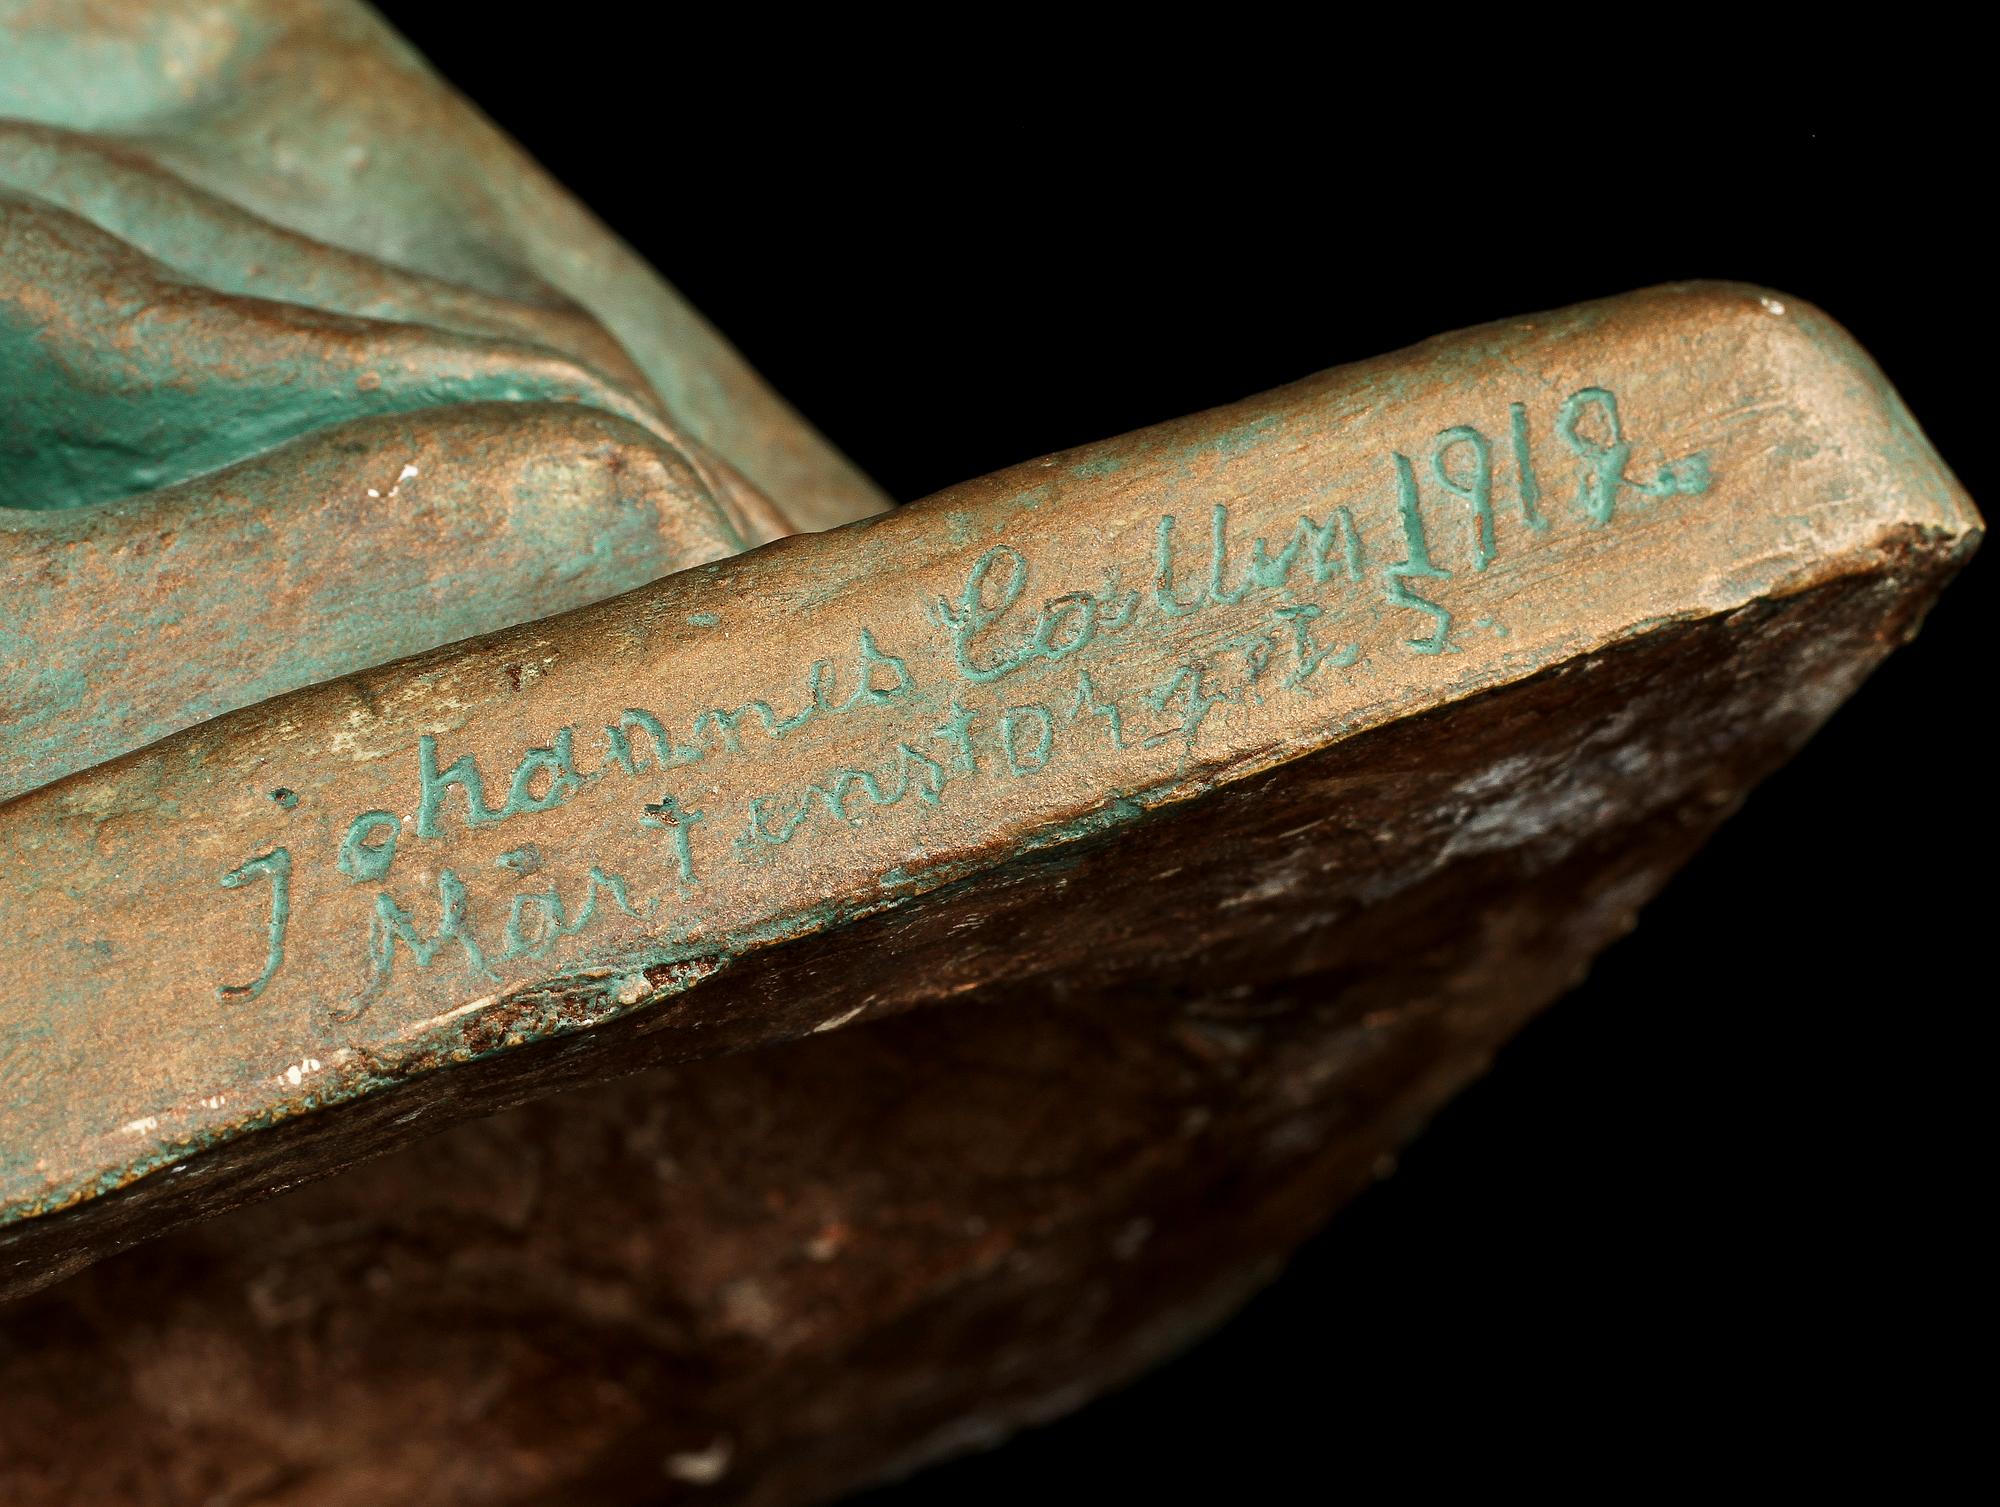 Johannes Collin 1918.
Mårtenstorget 5.